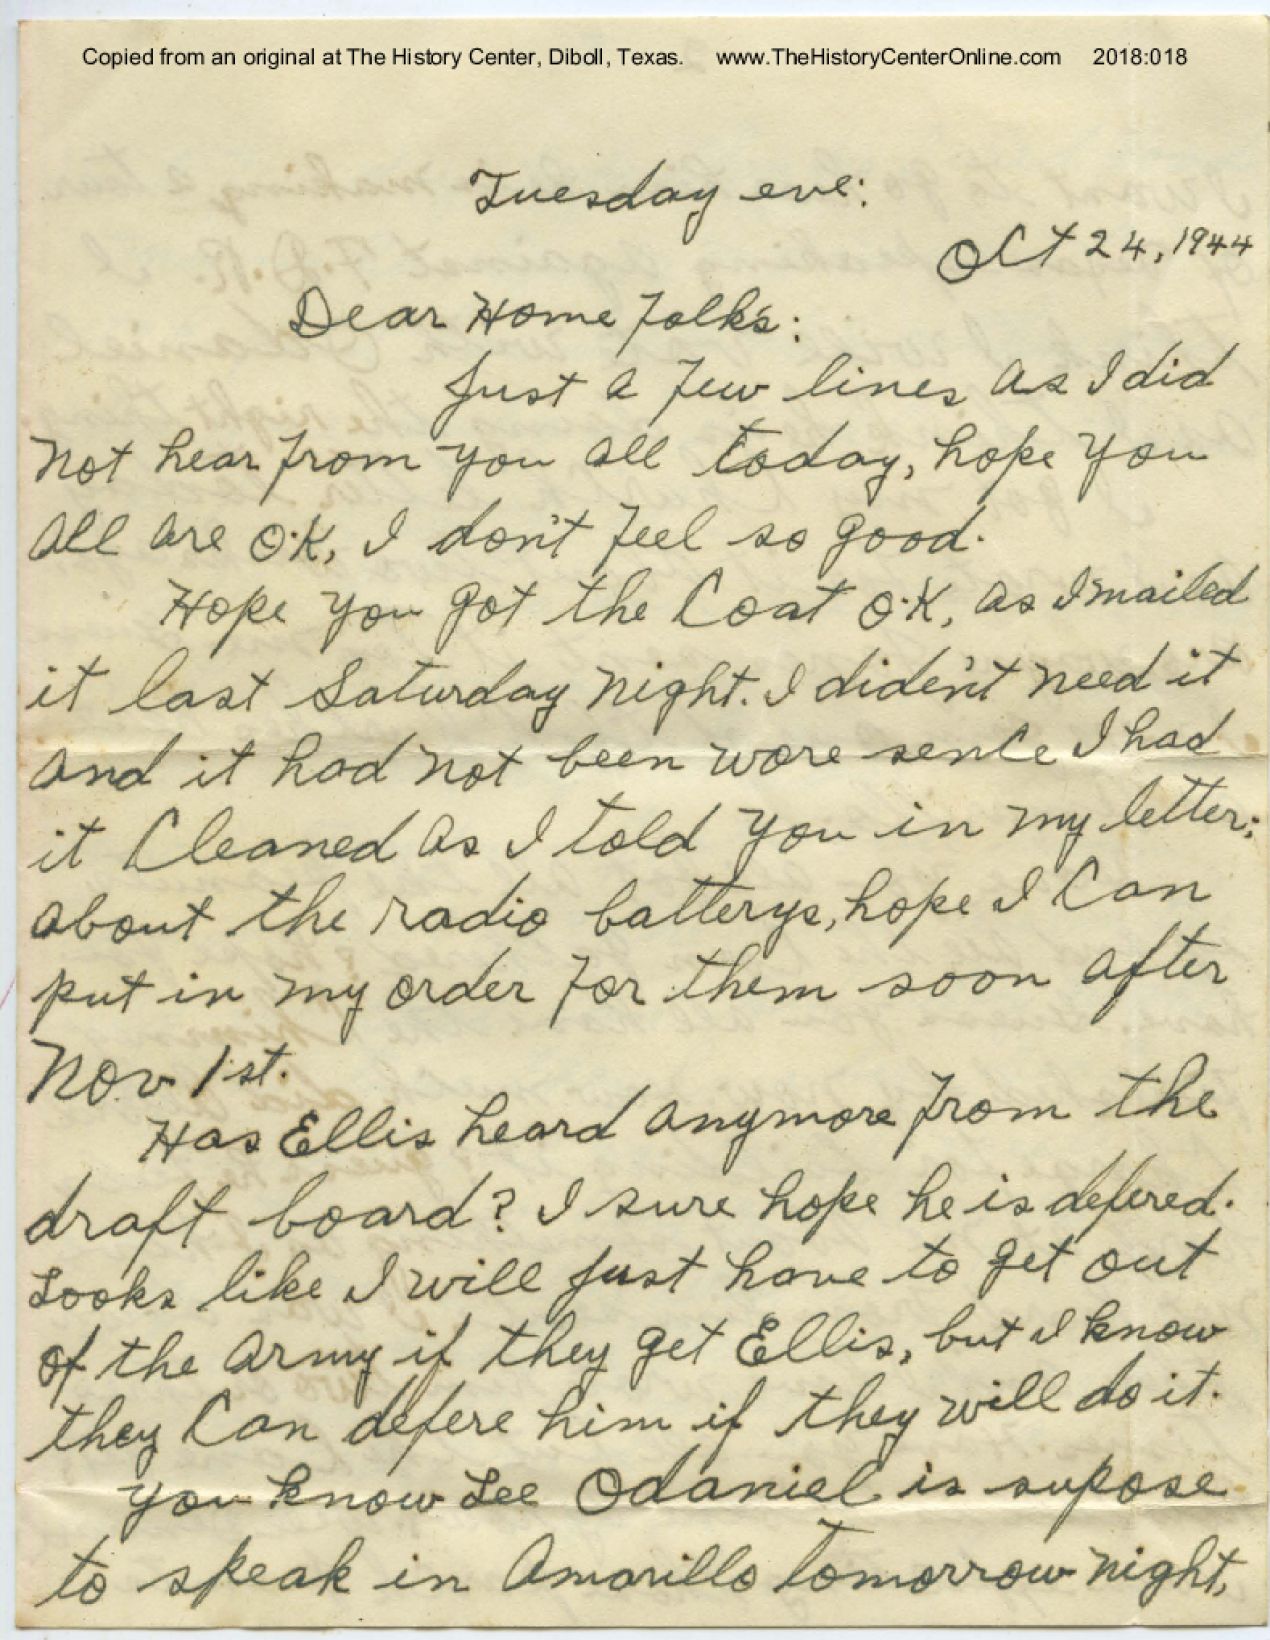 Copied from an original at The History Center, Diboll, Texas. www.TheHistoryCenterOnline.com 2018:018
Tuesday eve:
Oct 24, 1944
Dear Home Folks:
Just a few lines as I did
not hear from you all today, hope you
all are O.K, I don't feel so good.
Hope you got the Coat O.K, as I mailed
it last Saturday night. I diden't need it
and it had not been wore sence I had
it Cleaned as I told you in my letter:
about the radio batterys, hope I Can
put in my order for them soon after
Nov 1st.
Has Ellis heard anymore from the
draft board? I sure hope he is defered.
Looks like I will just have to get out
of the army if they get Ellis, but I know
they Can defere him if they will do it.
you know Lee Odaniel is supose
to speak in Amarillo tomorrow night,